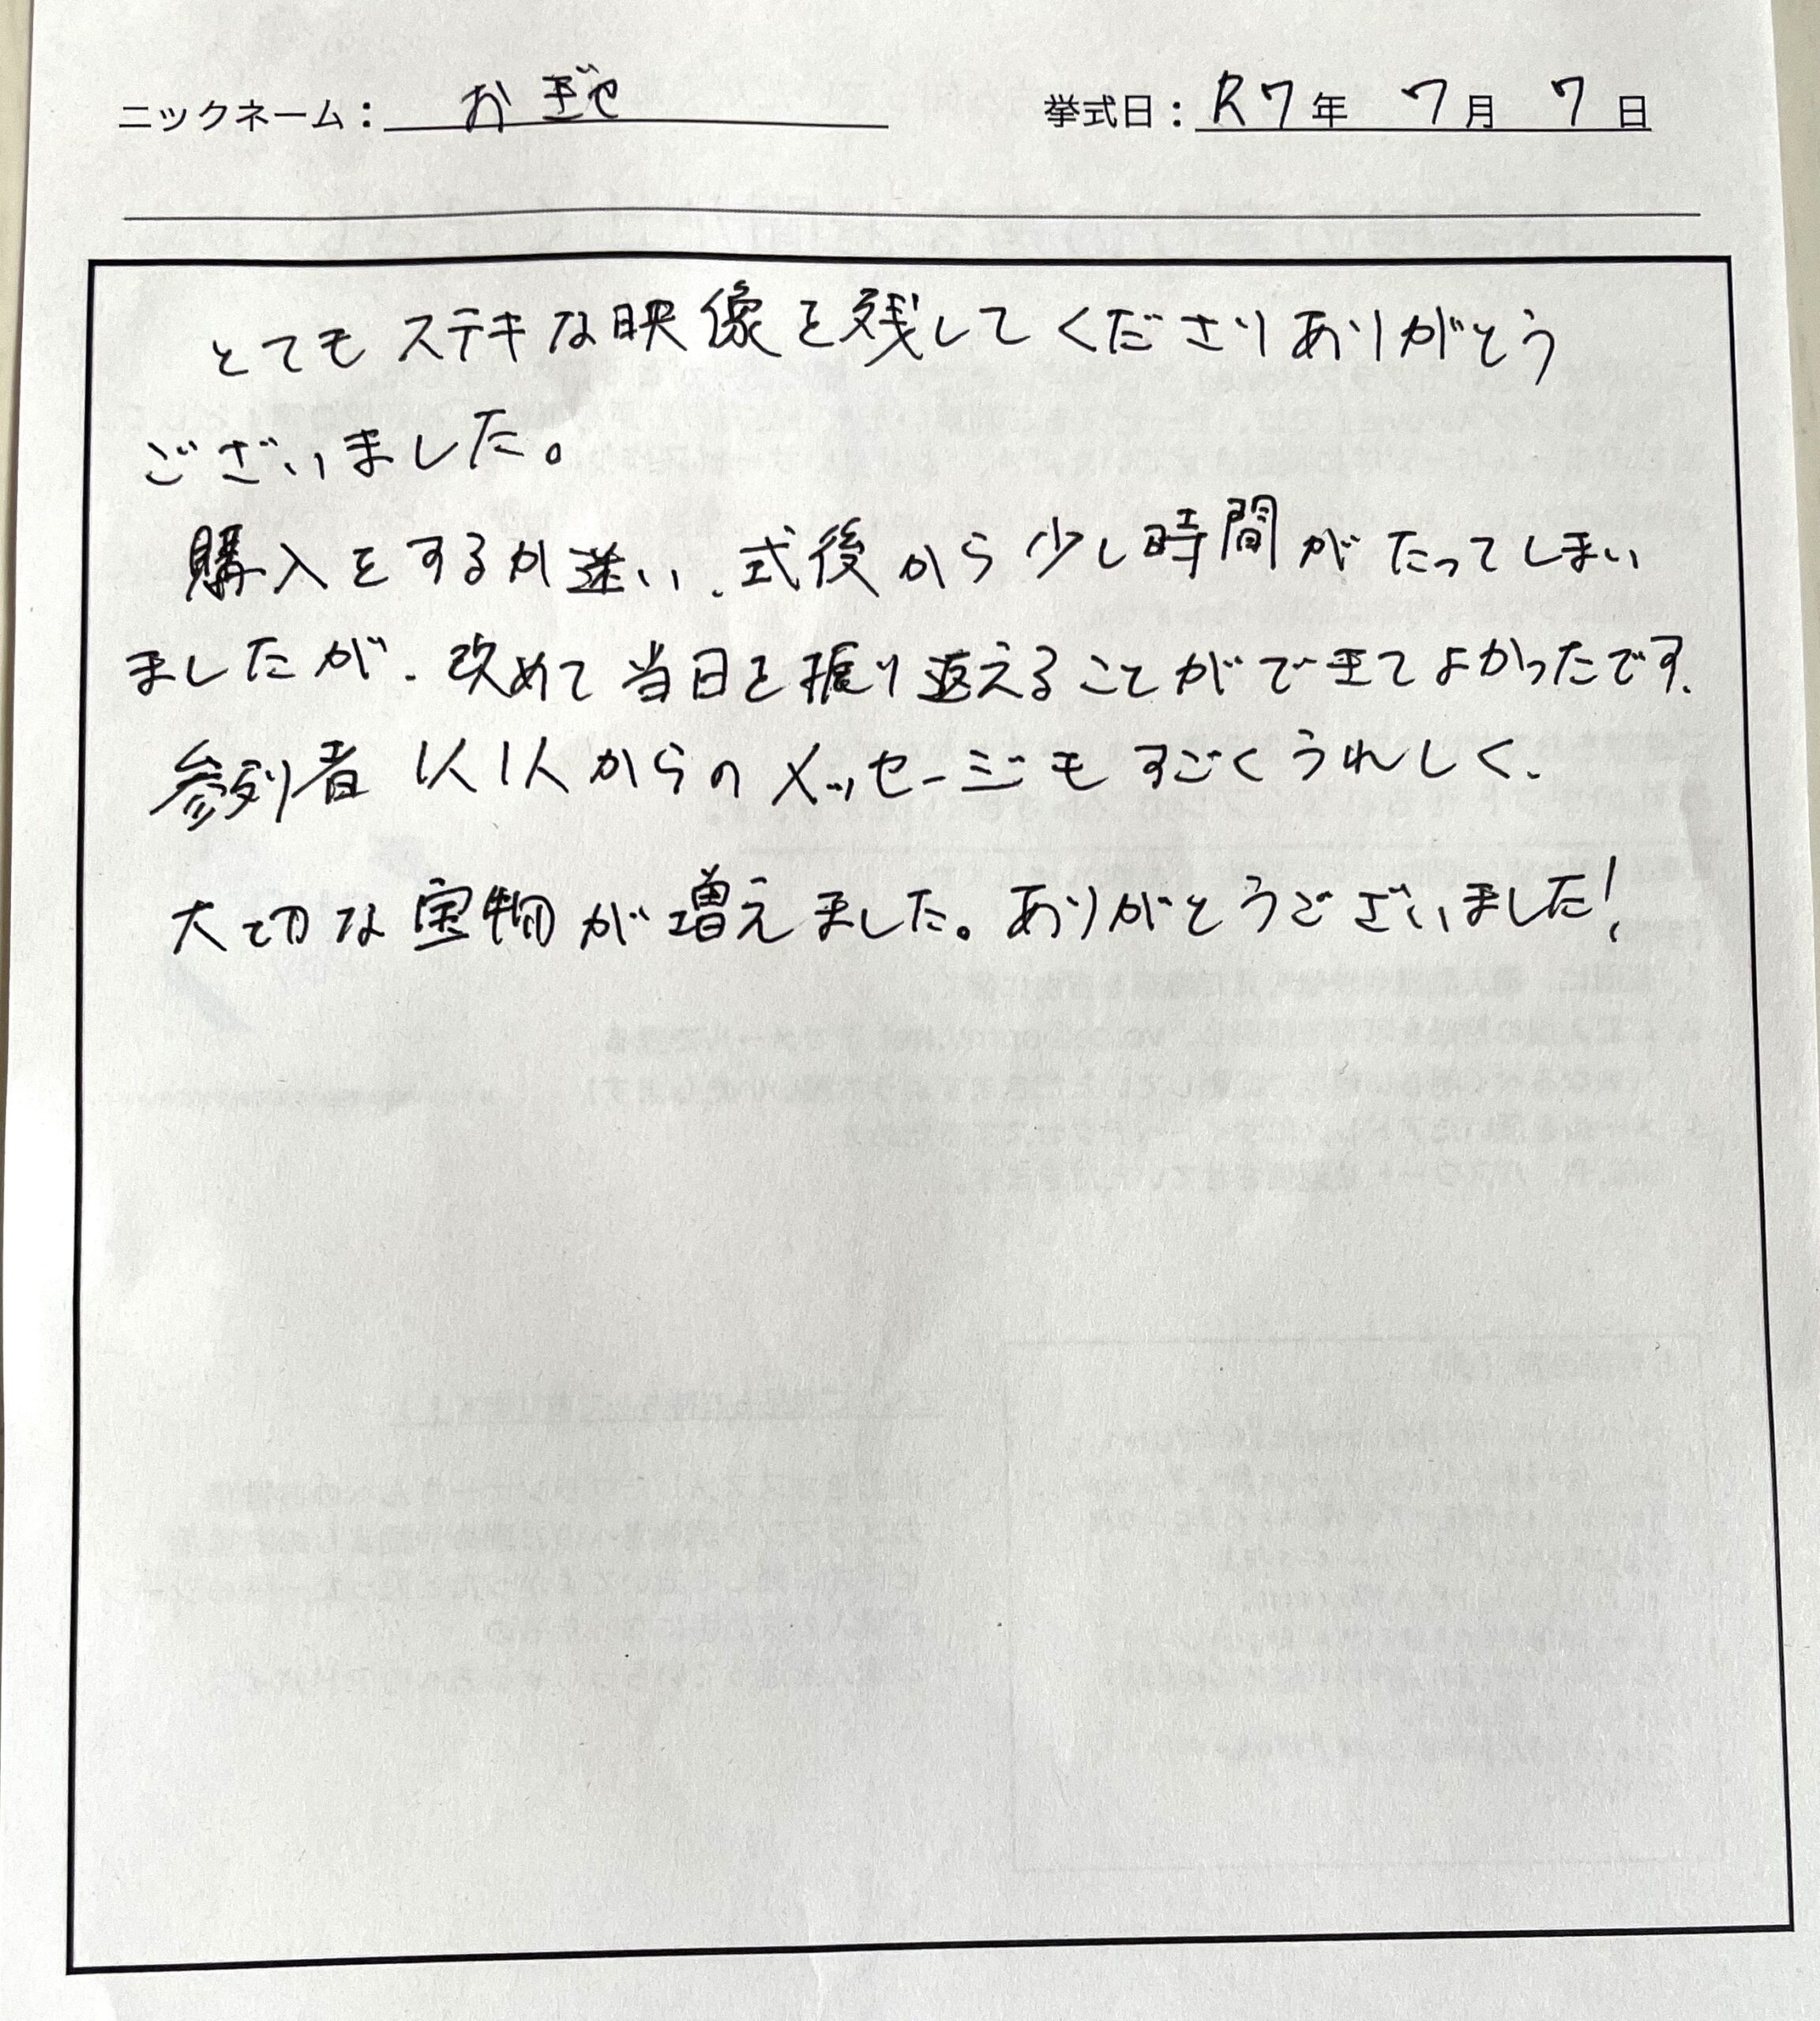 ニックネーム：おぎや 挙式日：R7年 7月 7日
とてもステキな映像を残してくださりありがとう
ございました。
購入をするか迷い、式後から少し時間がたってしまい
ましたが、改めて当日を振り返えることができてよかったです。
参列者1人1人からのメッセージもすごくうれしく、
大切な宝物が増えました。ありがとうございました!